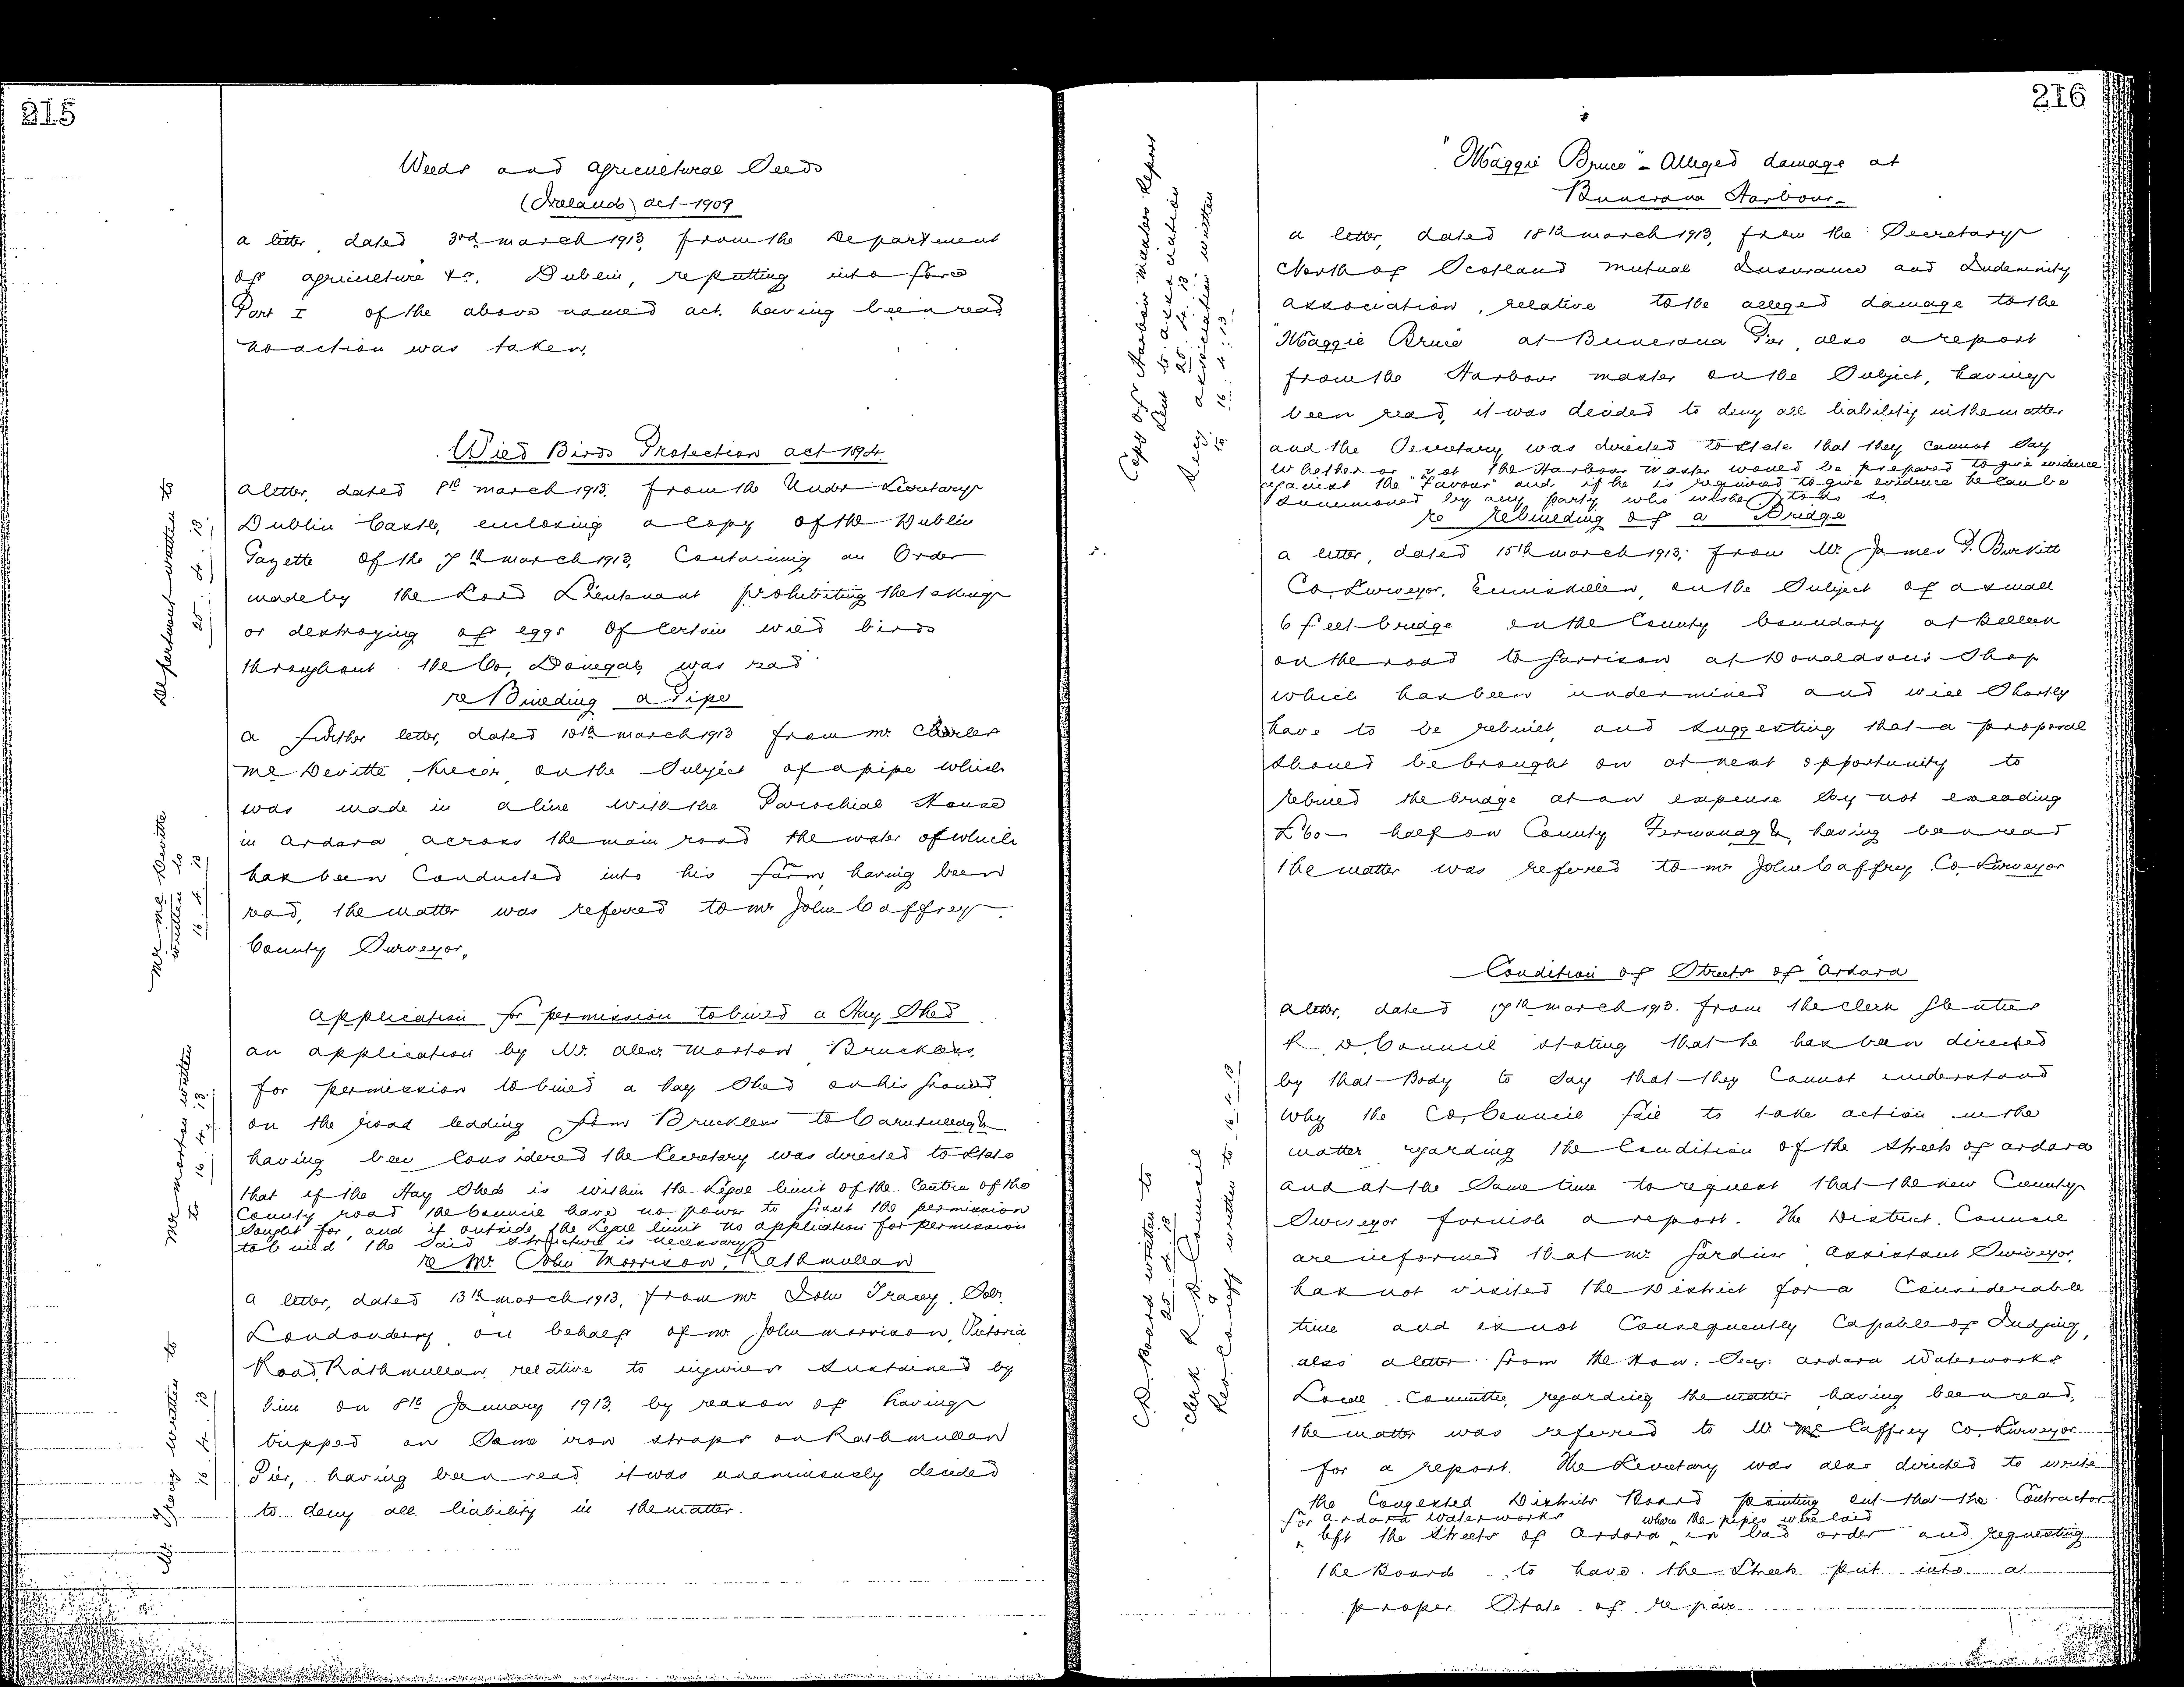 215
Weeds and Agricultural Seeds
(Ireland) Act - 1909
A letter, dated 3rd March 1913, from the Department
of Agriculture &c, Dublin, re putting into force
Part I of the above named act, having been read
no action was taken.
Wild Birds Protection Act 1894.
Department written to
25. 4. 13.
A letter, dated 8th March 1913, from the Under Secretary
Dublin Castle, enclosing a copy of the Dublin
Gazette of the 7th March 1913, Containing an Order
made by the Lord Lieutenant prohibiting the taking
or destroying of eggs of Certain wild birds
throughout the Co. Donegal, was read
re Building a Pipe
Mr. Mc Devitte
written to
16 4 13
A further letter, dated 10th March 1913 from Mr. Charles
Mc Devitte, on the Subject of a pipe which
was made in a line with the Parochial House
in Ardara across the main road the water of which
has been Conducted into his farm, having been
read, the matter was referred to Mr John Caffrey
County Surveyor.
Application for permission to build a Hay Shed
Mr Morton written
to 16. 4. 13
An application by Mr. Alex. Morton Bruckless,
for permission to build a hay Shed on his ground
on the road leading from Bruckless to
having been Considered the Secretary was directed to State
that if the Hay Shed is within the Legal limit of the Centre of the
County road the Council have no power to grant the permission
Sought for, and if outside the Legal limit no application for permission
to build the Said Structure is necessary
re Mr. John Morrison, Rathmullan
Mr Tracy written to
16. 4. 13
A letter, dated 13th March 1913, from Mr. John Tracy, Solr.
Londonderry on behalf of Mr John Morrison, Victoria
Road, Rathmullan, relative to injuries Sustained by
him on 8th January 1913, by reason of having
tripped on Some iron straps on Rathmullan
Pier, having been read, it was unanimously decided
to deny all liability in the matter.
216
"Maggie Bruce" - Alleged damage at
Buncrana Harbour -
Copy of Harbour Masters Report
Sent to Association
25. 4. 13
Secy. Association written
to 16. 4. 13.
A letter, dated 18th March 1913, from the Secretary
North of Scotland Mutual Insurance and Indemnity
Association, relative to the alleged damage to the
"Maggie Bruce" at Buncrana Pier, also a report
from the Harbour Master on the Subject, having
been read, it was decided to deny all liability in the matter
and the Secretary was directed to State that they Cannot Say
Whether or not the Harbour Master would be prepared to give evidence
against the "Favour" and if he is required to give evidence he can be
Summoned by any party who wishes to do so.
re Rebuilding of a Bridge
A letter, dated 15th March 1913, from Mr. James P. Burkitt
Co. Surveyor, Enniskillen, on the Subject of a small
6 feet bridge on the County boundary at Belleek
on the road to Garrison at Donaldson's Shop
which has been undermined and will Shortly
have to be rebuilt, and Suggesting that a proposal
Should be brought on at next opportunity to
rebuild the bridge at an expense Say not exceeding
£60 - half on County Fermanagh, having been read
the matter was referred to Mr John Caffrey Co. Surveyor
Condition of Streets of Ardara
C.D. Board written to
25. 4. 13
Clerk R. D. Council
& Rev. written to 16. 4. 13
A letter, dated 17th March 1913. from the Clerk Glenties
R. D. Council stating that he has been directed
by that Body to Say that they Cannot understand
Why the Co. Council fail to take action in the
matter regarding the Condition of the Streets of Ardara
and at the Same time to request that the new County
Surveyor furnish a report. The District Council
are informed that Mr. Gardiner Assistant Surveyor,
has not visited the District for a Considerable
time and is not Consequently Capable of Judging,
also a letter from the Hon: Secy: Ardara Waterworks
Local Committee, regarding the matter having been read,
the matter was referred to Mr Caffrey Co. Surveyor
for a report. The Secretary was also directed to write
the Congested Districts Board pointing out that the Contractor
for Ardara Waterworks where the pipes were laid
left the Streets of Ardara in bad order and requesting
the Board to have the Streets put into a
proper State of repair